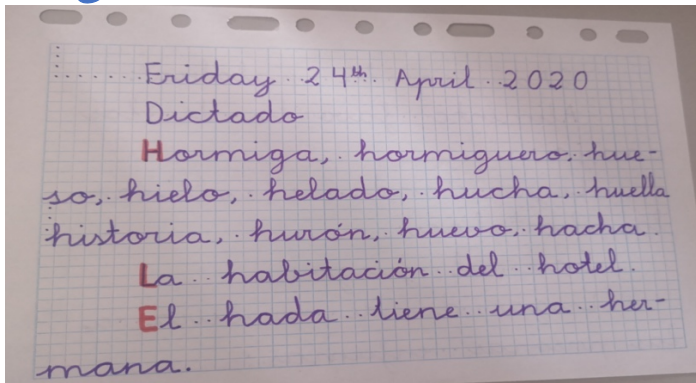 Friday 24th April 2020
Dictado
Hormiga, hormiguero, hue-
so, hielo, helado, hucha, huella
historia, hurón, huevo, hacha.
La habitación del hotel.
El hada tiene una her-
mana.